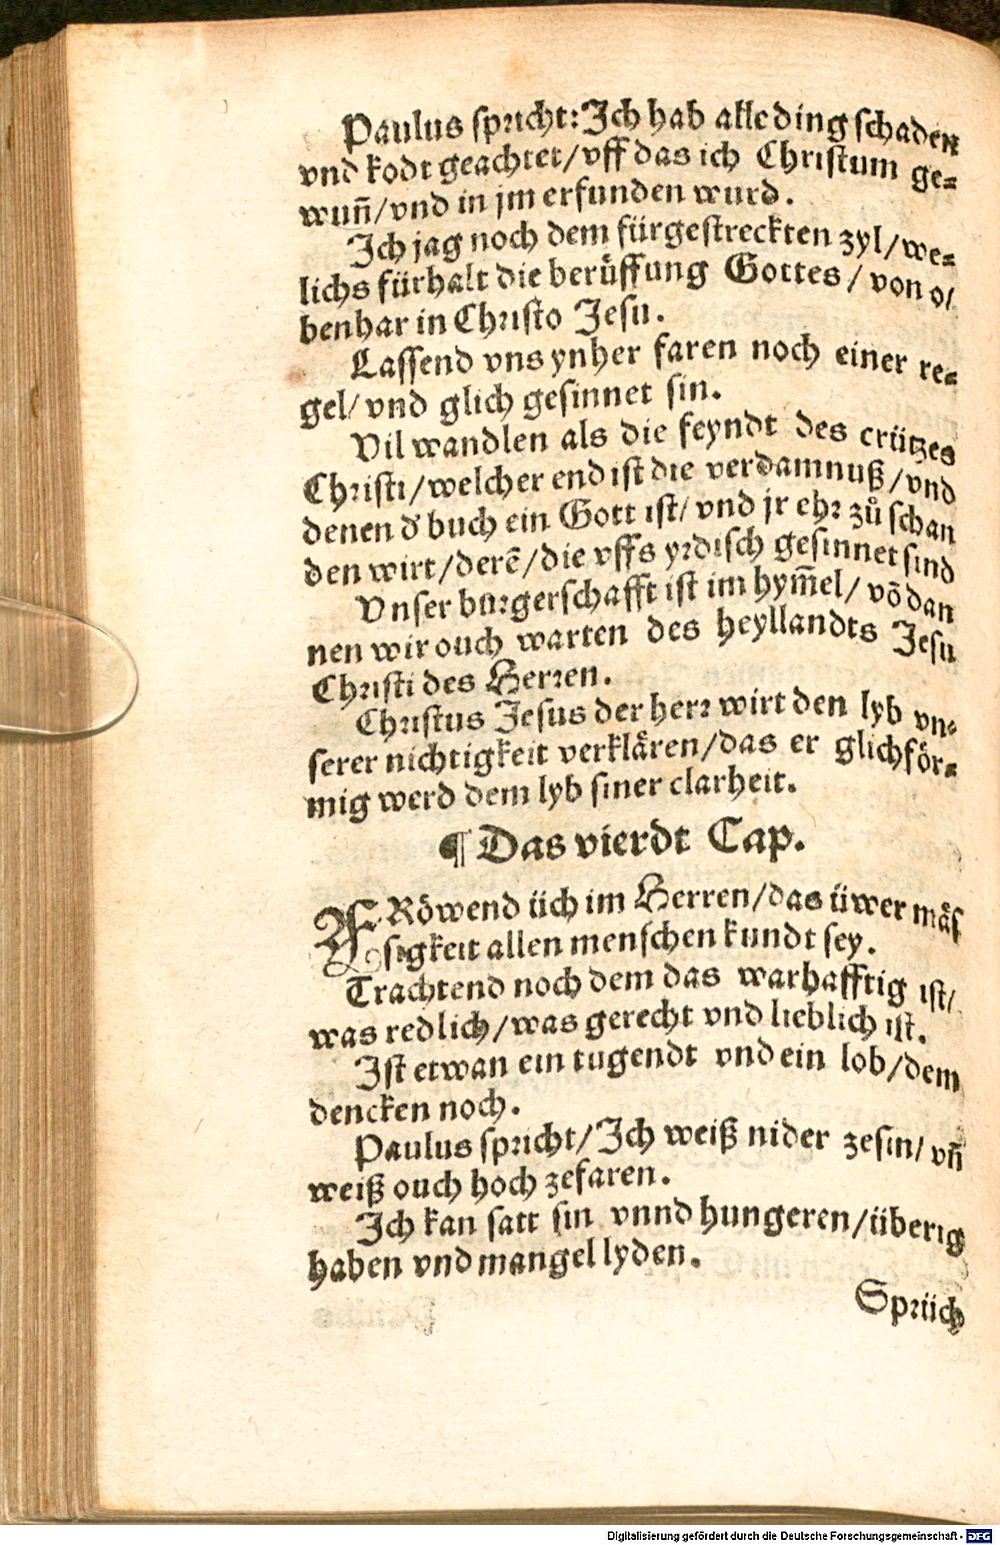 Paulus spricht: Ich hab alle ding schaden
vnd kodt geachtet/vff das ich Christum ge⸗
wuñ/vnd in jm erfunden wurd.
Ich jag noch dem fürgestreckten zyl/we⸗
lichs fürhalt die berüffung Gottes/von o/
benhar in Christo Jesu.
Lassend vns ynher faren noch einer re⸗
gel/vnd glich gesinnet sin.
Vil wandlen als die feyndt des crützes
Christi/welcher end ist die verdamnuß/vnd
denen d' buch ein Gott ist/vnd jr ehr zů schan
den wirt/derē/die vffs yrdisch gesinnet sind
Vnser burgerschafft ist im hym̄el/võ dan
nen wir ouch warten des heyllandts Jesu
Christi des Herren.
Christus Jesus der herr wirt den lyb vn⸗
serer nichtigkeit verklären/das er glichför⸗
mig werd dem lyb siner clarheit.
¶ Das vierdt Cap.
FRöwend üch im Herren/das üwer mäs
sigkeit allen menschen kundt sey.
Trachtend noch dem das warhafftig ist/
was redlich/was gerecht vnd lieblich ist.
Ist etwan ein tugendt vnd ein lob/dem
dencken noch.
Paulus spricht/Ich weiß nider zesin/vñ
weiß ouch hoch zefaren.
Ich kan satt sin vnnd hungeren/überig
haben vnd mangel lyden.
Sprüch
Digitalisierung gefördert durch die Deutsche Forschungsgemeinschaft - DFG